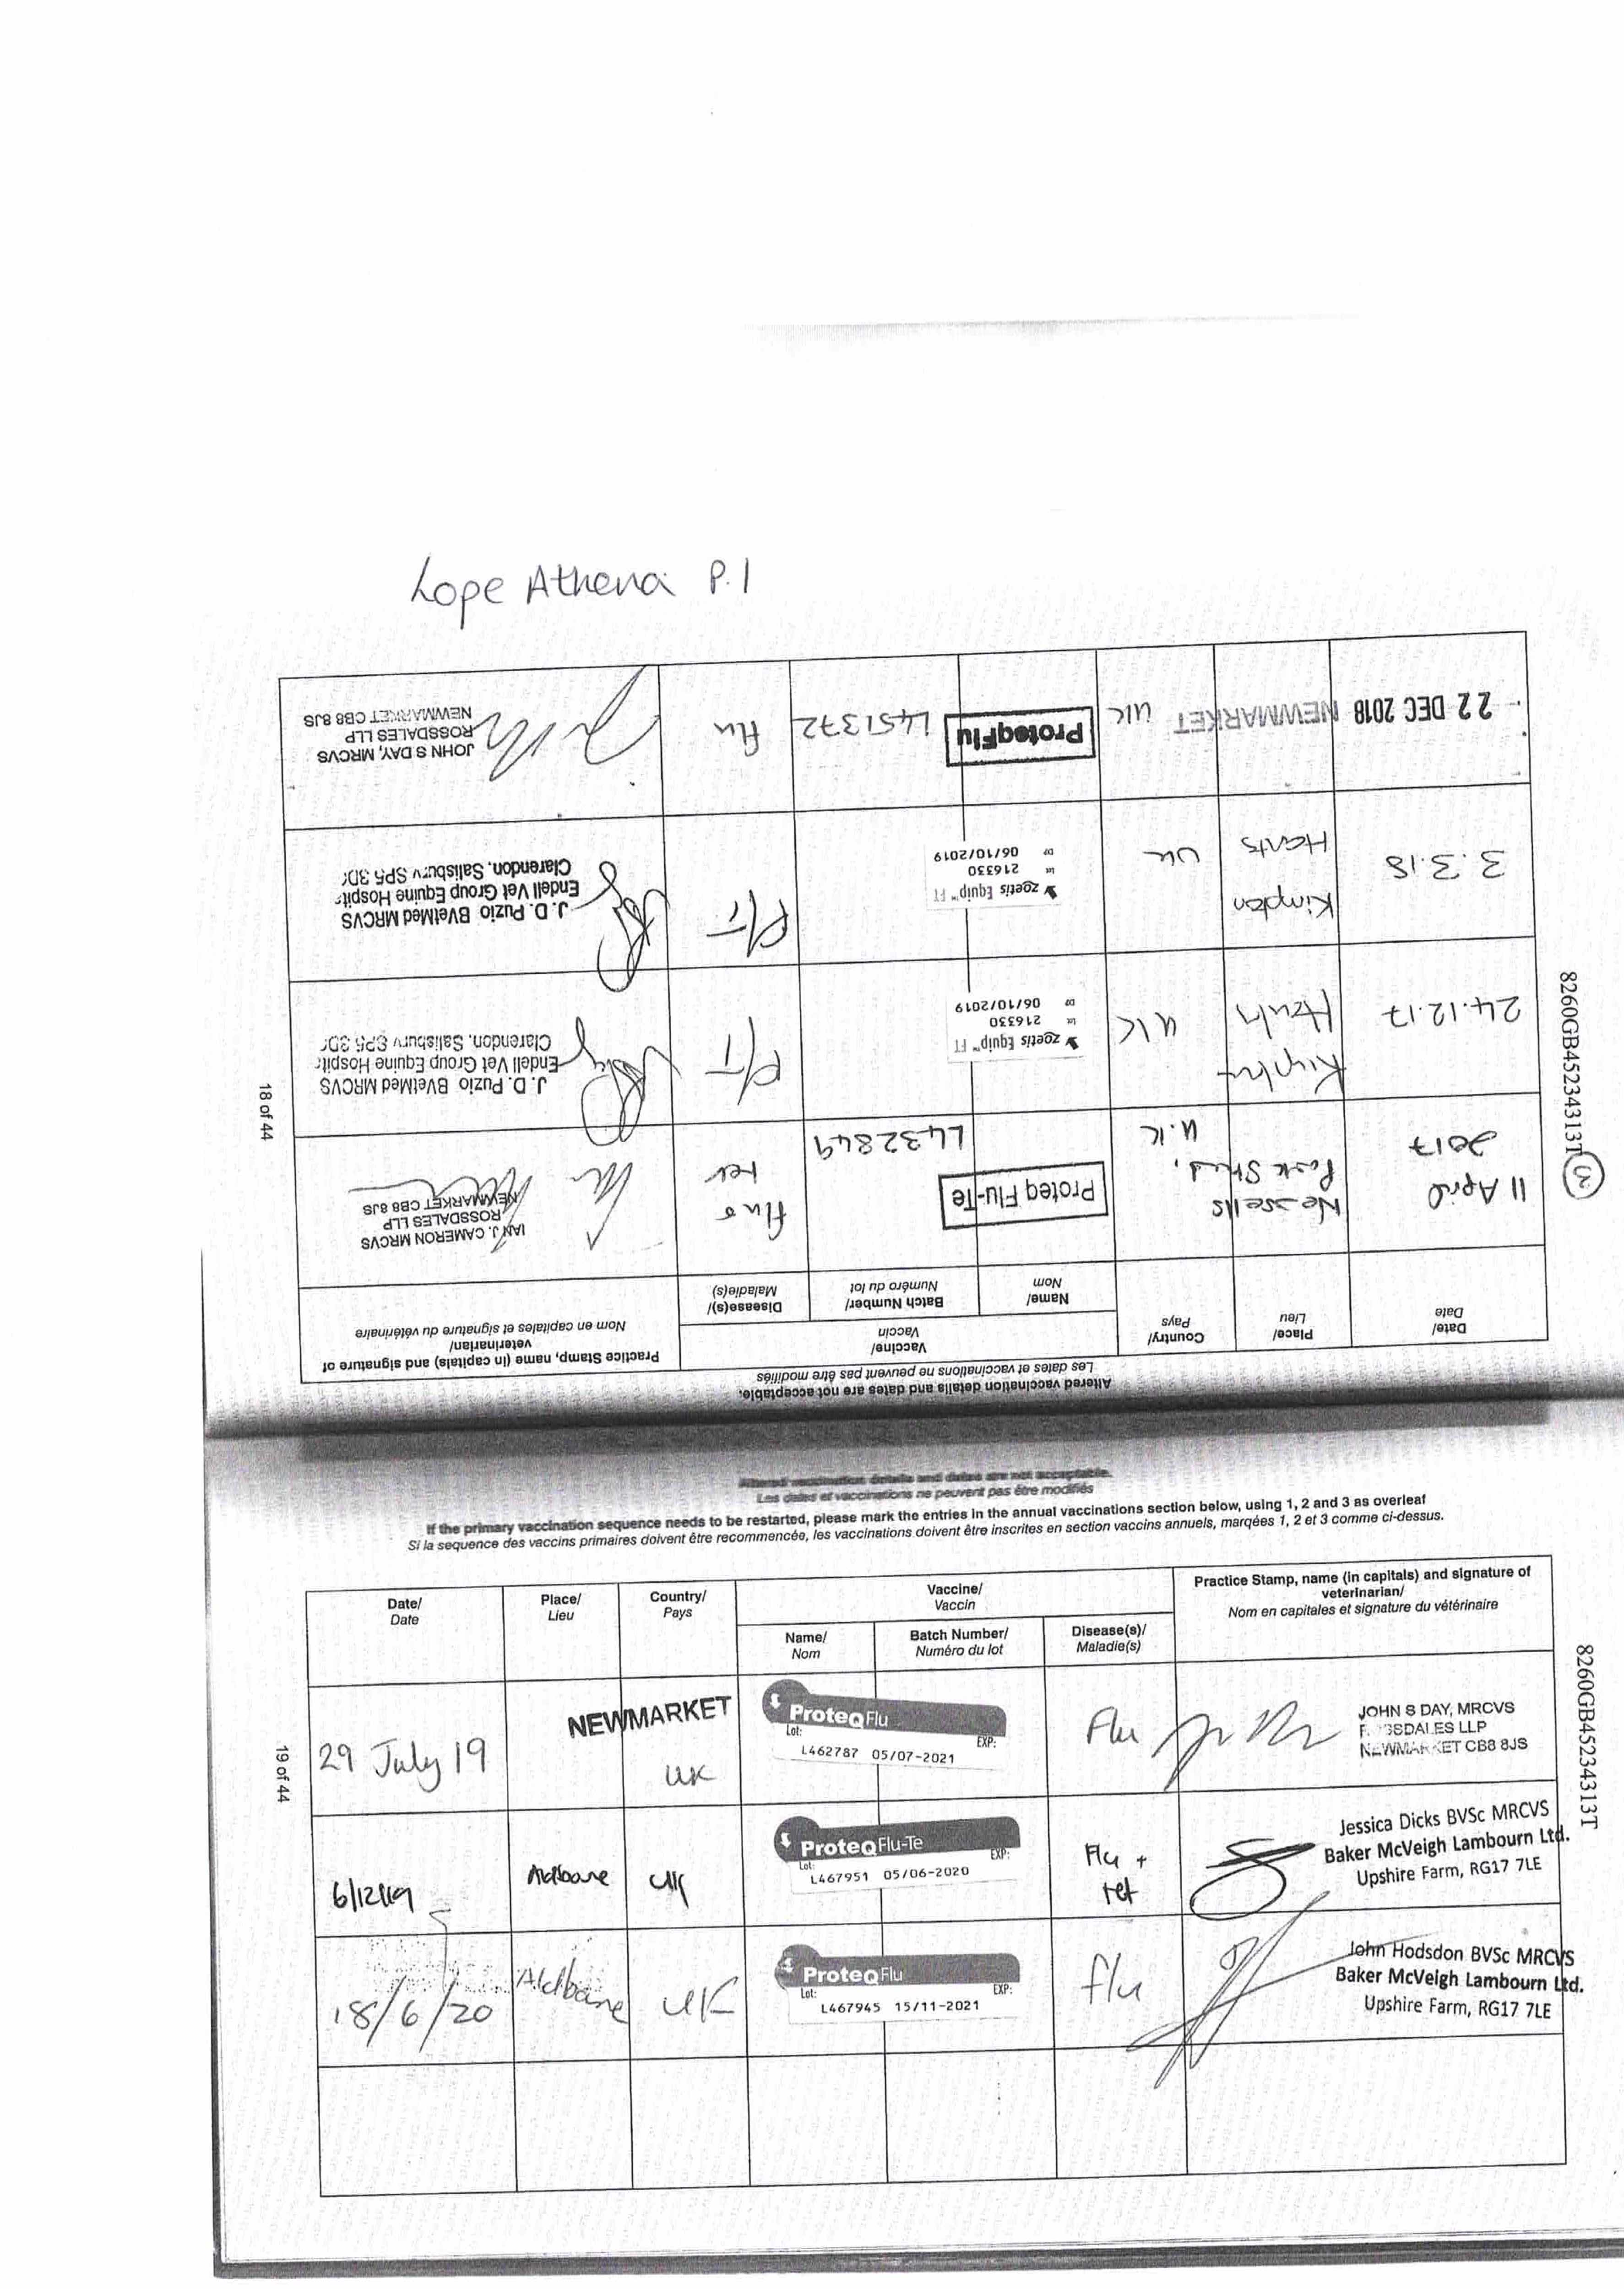 Lope Athena P.1
Altered vaccination details and dates are not acceptable.
Les dates et vaccinations ne peuvent pas être modifiés
Date/ Date
Place/ Lieu
Country/ Pays
Vaccine/ Vaccin
Name/ Nom
Batch Number/ Numéro du lot
Disease(s)/ Maladie(s)
Practice Stamp, name (in capitals) and signature of veterinarian/
Nom en capitales et signature du vétérinaire
11 April 2017
Nesells Park Stud,
U.K
Proteq Flu-Te
L432849
flu & tet
IAN J. CAMERON MRCVS
ROSSDALES LLP
NEWMARKET CB8 8JS
24.12.17
UK
zoetis Equip™ FT
216330
06/10/2019
F/T
J. D. Puzio BVetMed MRCVS
Endell Vet Group Equine Hospit
Clarendon, Salisbury SP5 3D
3.3.18
Kimpton Hants
UK
zoetis Equip™ FT
216330
06/10/2019
F/T
J. D. Puzio BVetMed MRCVS
Endell Vet Group Equine Hospit
Clarendon, Salisbury SP5 3D
22 DEC 2018
NEWMARKET
UK
ProteqFlu
L451372
flu
JOHN S DAY, MRCVS
ROSSDALES LLP
NEWMARKET CB8 8JS
8260GB45234313T
3
18 of 44
Altered vaccination details and dates are not acceptable.
Les dates et vaccinations ne peuvent pas être modifiés
If the primary vaccination sequence needs to be restarted, please mark the entries in the annual vaccinations section below, using 1, 2 and 3 as overleaf
Si la sequence des vaccins primaires doivent être recommencée, les vaccinations doivent être inscrites en section vaccins annuels, marqées 1, 2 et 3 comme ci-dessus.
Date/ Date
Place/ Lieu
Country/ Pays
Vaccine/ Vaccin
Name/ Nom
Batch Number/ Numéro du lot
Disease(s)/ Maladie(s)
Practice Stamp, name (in capitals) and signature of veterinarian/
Nom en capitales et signature du vétérinaire
29 July 19
NEWMARKET
UK
ProteqFlu
Lot: EXP:
L462787 05/07-2021
Flu
JOHN S DAY, MRCVS
ROSSDALES LLP
NEWMARKET CB8 8JS
6/12/19
Aldbourne
UK
ProteqFlu-Te
Lot: EXP:
L467951 05/06-2020
Flu + tet
Jessica Dicks BVSc MRCVS
Baker McVeigh Lambourn Ltd.
Upshire Farm, RG17 7LE
18/6/20
Aldbourne
UK
ProteqFlu
Lot: EXP:
L467945 15/11-2021
flu
John Hodsdon BVSc MRCVS
Baker McVeigh Lambourn Ltd.
Upshire Farm, RG17 7LE
8260GB45234313T
19 of 44